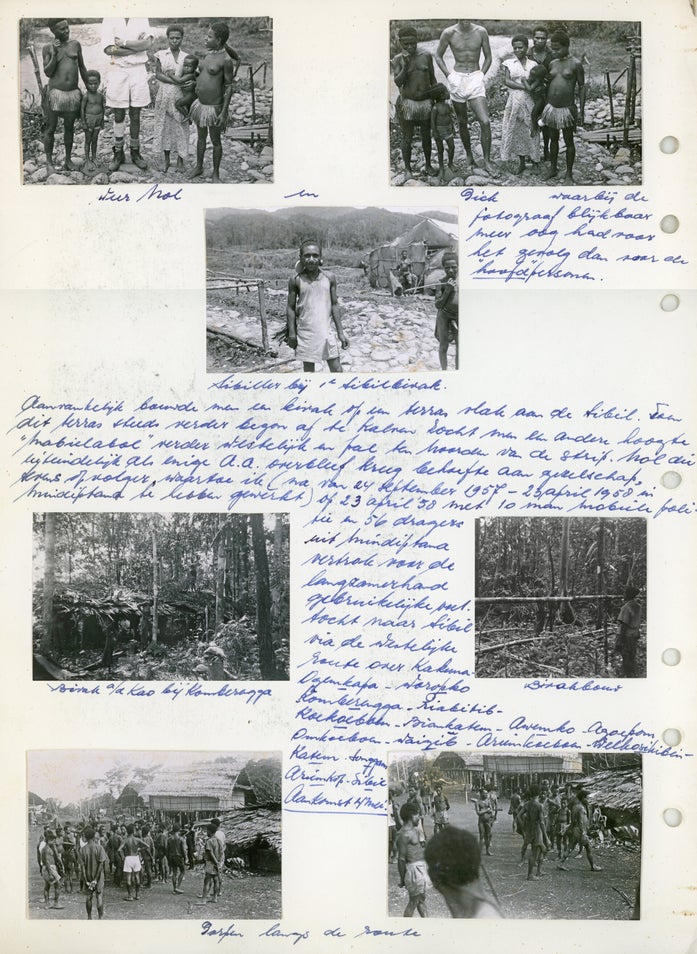 Fer Mol en Dick waarbij de
fotograaf blijkbaar
meer oog had voor
het gevolg dan voor de
"hoofd"personen.
Sibiller bij 1e Sibilbivak.
Aanvankelijk bouwde men een bivak op een terras vlak aan de Sibil. Toen
dit terras steeds verder begon af te kalven zocht men een andere hoogte
"Mabilabol" verder westelijk en pal ten noorden van de strip. Mol die
uiteindelijk als enige A.A. overbleef kreeg behoefte aan gezelschap,
tevens opvolger, waartoe ik (na van 24 september 1957 - 23 april 1958 in
Mindiptana te hebben gewerkt) op 23 april 58 met 10 man mobiele poli-
tie en 56 dragers
uit Mindiptana
vertrok voor de
langzamerhand
gebruikelijke voet-
tocht naar Sibil
via de westelijke
route over Kakuna
Ogemkapa - Woropko
Komberagga - Kiabitib -
Koekoeboem - Biankatem - Awemko - Agoepom
Omkoeboem - Taigib - Ariemkoeboem - Betkorikibin -
Katem -
Ariemkop - Sibil
Aankomst 4 Mei.
Bivak a/d Kao bij Komberagga
Bivakbouw
Dorpen langs de route.